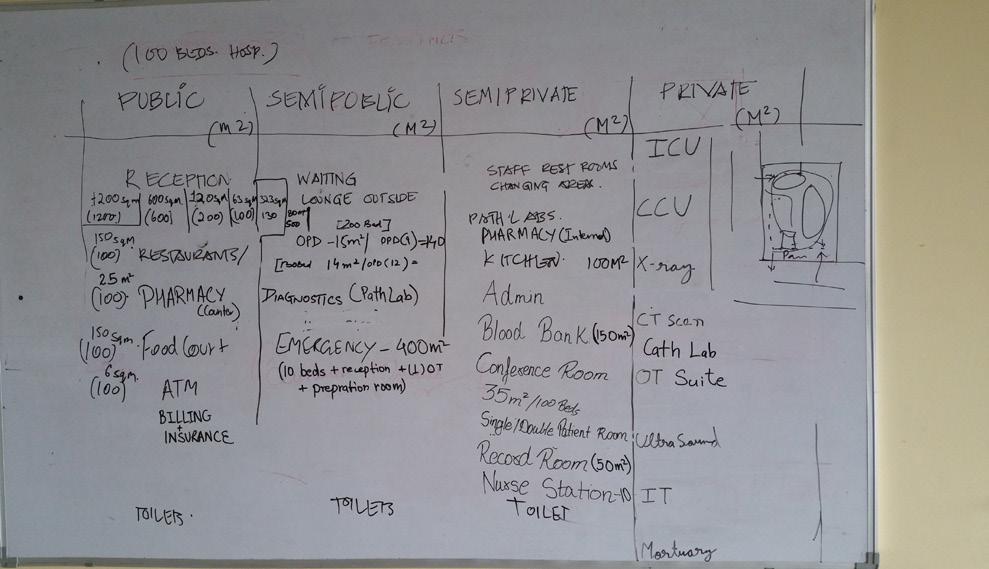 (100 BEDS. HOSP.)
PUBLIC
(m2)
RECEPTION
1200sqm 600sqm 120sqm 63sqm 323sqm
(1200) (600) (200) (100) 130
150sqm
(100) RESTAURANTS/
25 m²
(100) PHARMACY
(Counter)
150sqm
(100) Food Court
6sqm.
(100) ATM
BILLING
+
INSURANCE
TOILETS.
SEMIPUBLIC
(M2)
WAITING
LOUNGE OUTSIDE
500
[200 Bed]
OPD -15m²/ OPD(1)=140
14m²/OPD(12)=
DIAGNOSTICS (PathLab)
EMERGENCY - 400m²
(10 beds + reception + (1) OT
+ prepration room)
TOILETS
SEMIPRIVATE
(M²)
STAFF REST ROOMS
CHANGING AREA.
PATH LABS.
PHARMACY (Internal)
KITCHEN 100M²
Admin
Blood Bank (150m²)
Conference Room
35m²/100 Beds
Single/Double Patient Room
Record Room (50m²)
Nurse Station-10
TOILET
PRIVATE
(M²)
ICU
CCU
X-ray
CT Scan
Cath Lab
OT Suite
Ultra Sound
IT
Mortuary
Pan